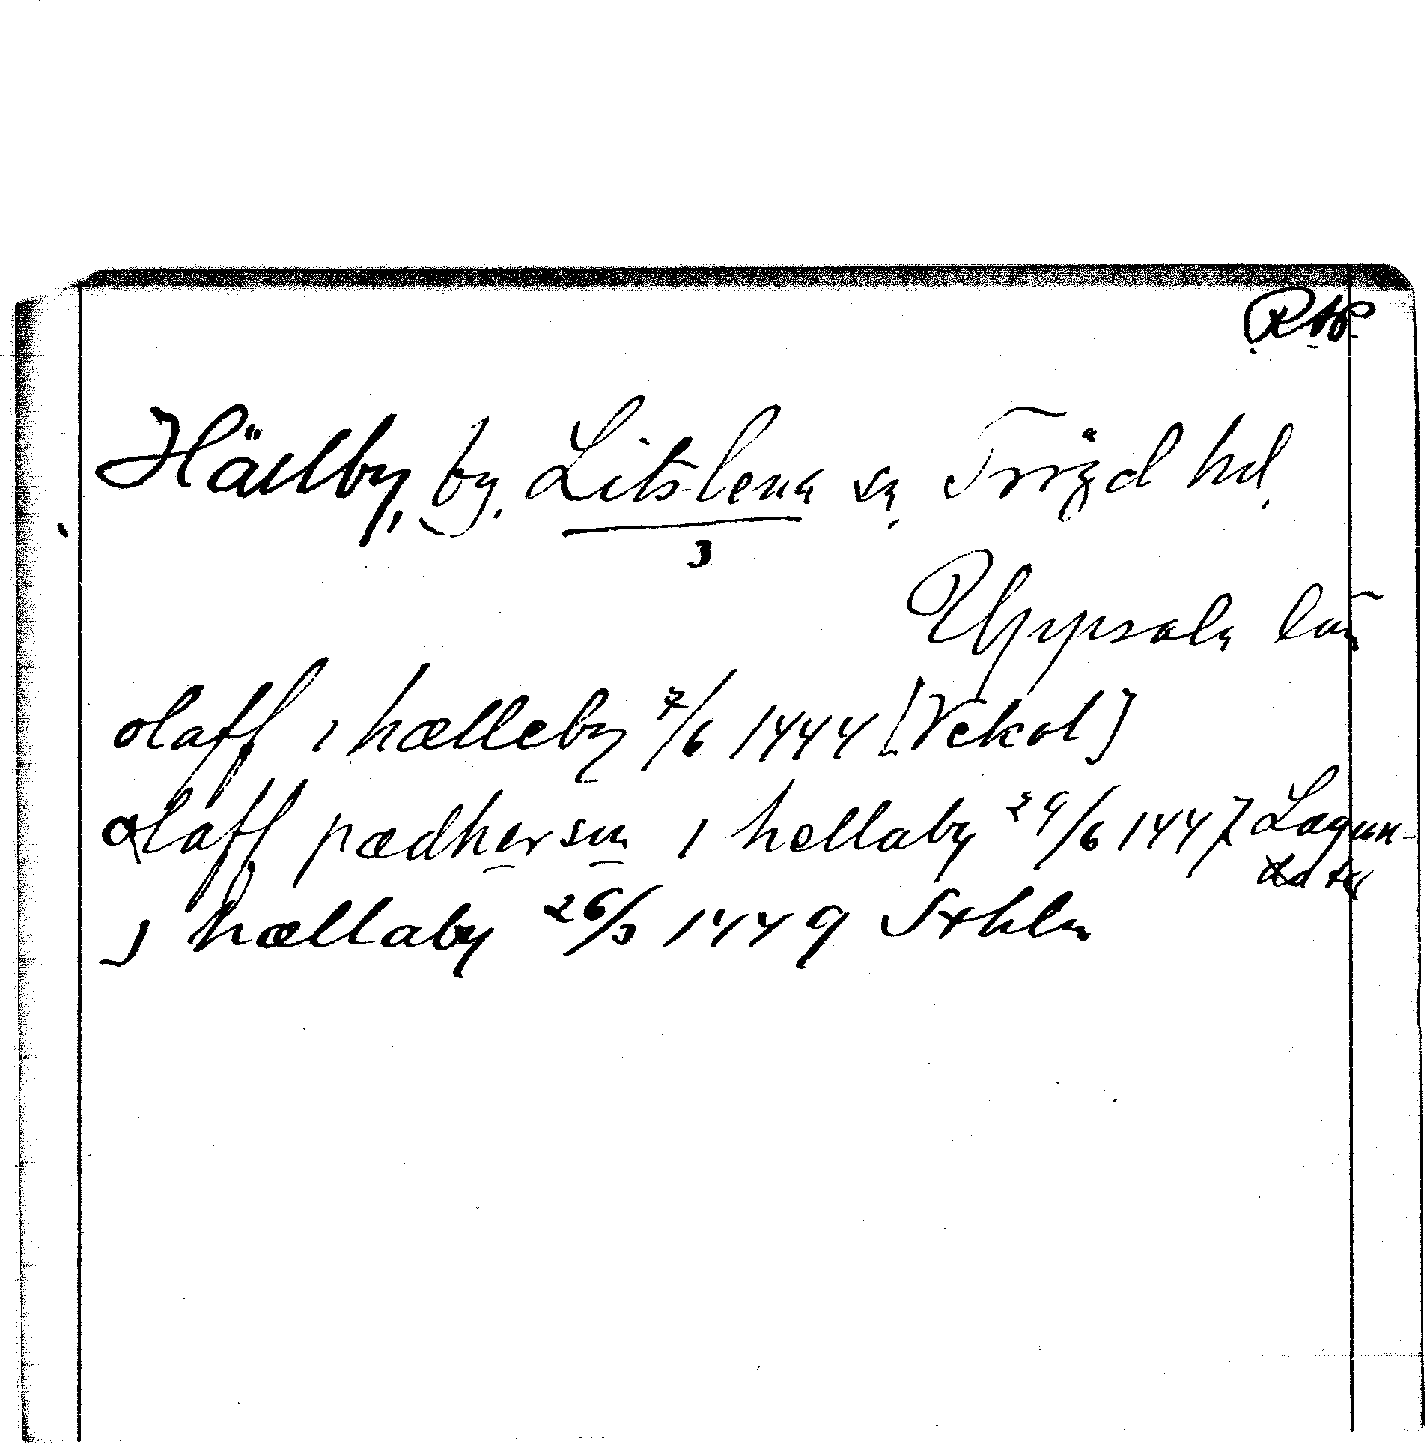 Hällby, by, Litslena sn, Trögd hd,
3
Uppsala län
olaff i hælleby 7/6 1444 [Vekol]
olaff pædhersen i hellaby 29/6 1447 Lagun-
da tg
j hællaby 26/3 1449 Sthlm